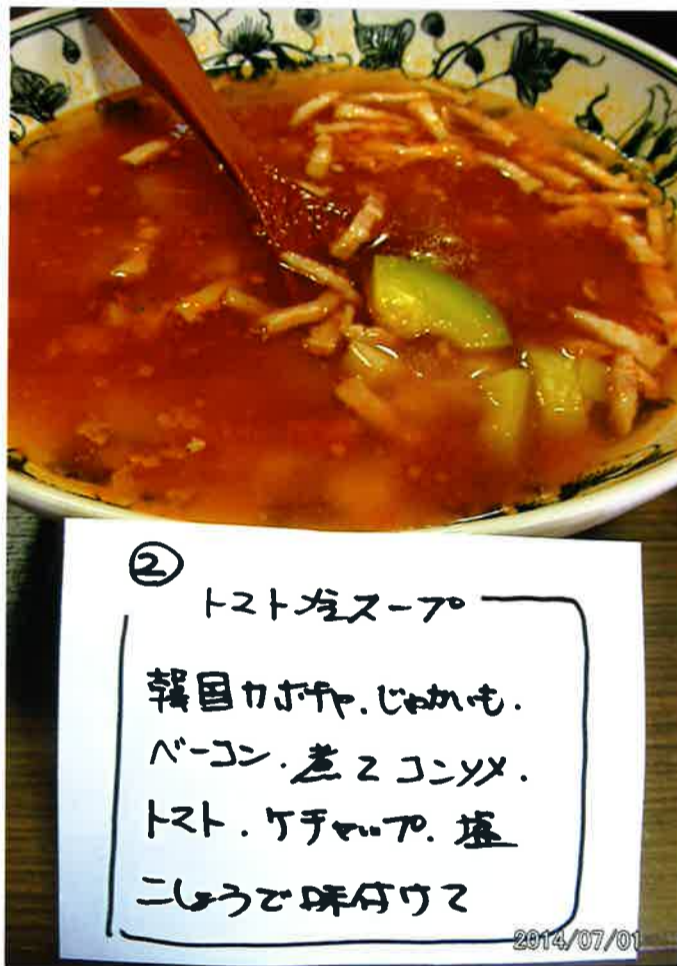 ②
トマト冷スープ
韓国カボチャ.じゃがいも.
ベーコン.煮てコンソメ.
トマト.ケチャップ.塩
こしょうで味付けて
2014/07/01